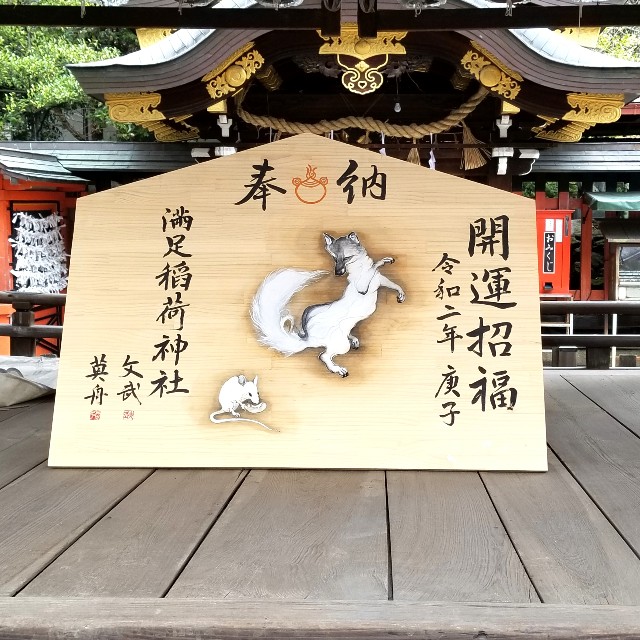 奉納
開運招福
令和二年 庚子
満足稲荷神社
文武
英舟
おみくじ